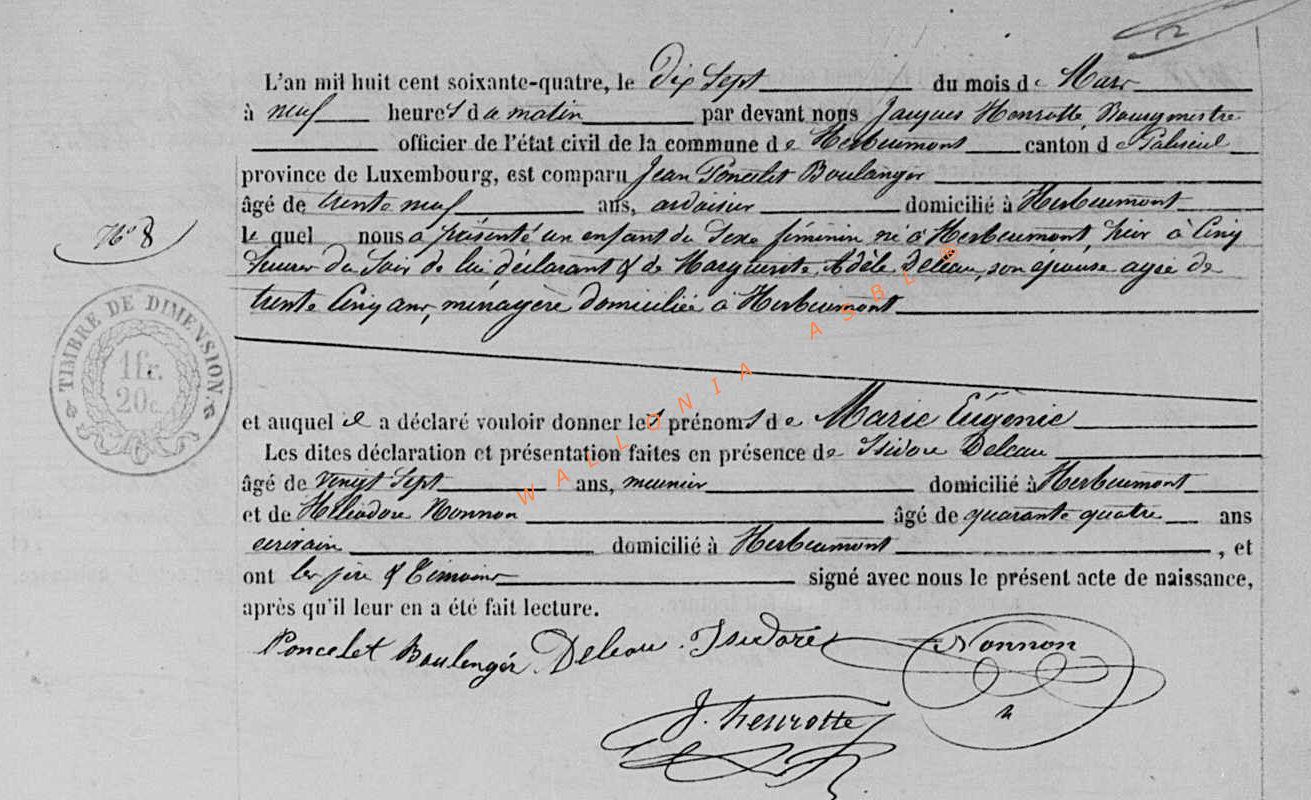 L'an mil huit cent soixante-quatre, le Dix Sept du mois de Mars
à neuf heures du matin par devant nous Jacques Henrotte, Bourgmestre
officier de l'état civil de la commune de Herbeumont canton de Paliseul
province de Luxembourg, est comparu Jean Poncelet Boulanger
âgé de trente neuf ans, ardoisier domicilié à Herbeumont
le quel nous a présenté un enfant du Sexe féminin né à Herbeumont, hier à Cinq
heures du Soir de lui déclarant & de Marguerite Adèle Deleau, son épouse agée de
trente Cinq ans, ménagère domiciliée à Herbeumont
N° 8
TIMBRE DE DIMENSION.
1fr.
20c.
et auquel il a déclaré vouloir donner les prénoms de Marie Eugénie
Les dites déclaration et présentation faites en présence de Isidore Deleau
âgé de vingt Sept ans, meunier domicilié à Herbeumont
et de Héliodore Nonnon âgé de quarante quatre ans
écrivain domicilié à Herbeumont, et
ont les père & témoins signé avec nous le présent acte de naissance,
après qu'il leur en a été fait lecture.
Poncelet Boulengér Deleau Isidore Nonnon
J. henrotte
WALLONIA ASBL ®